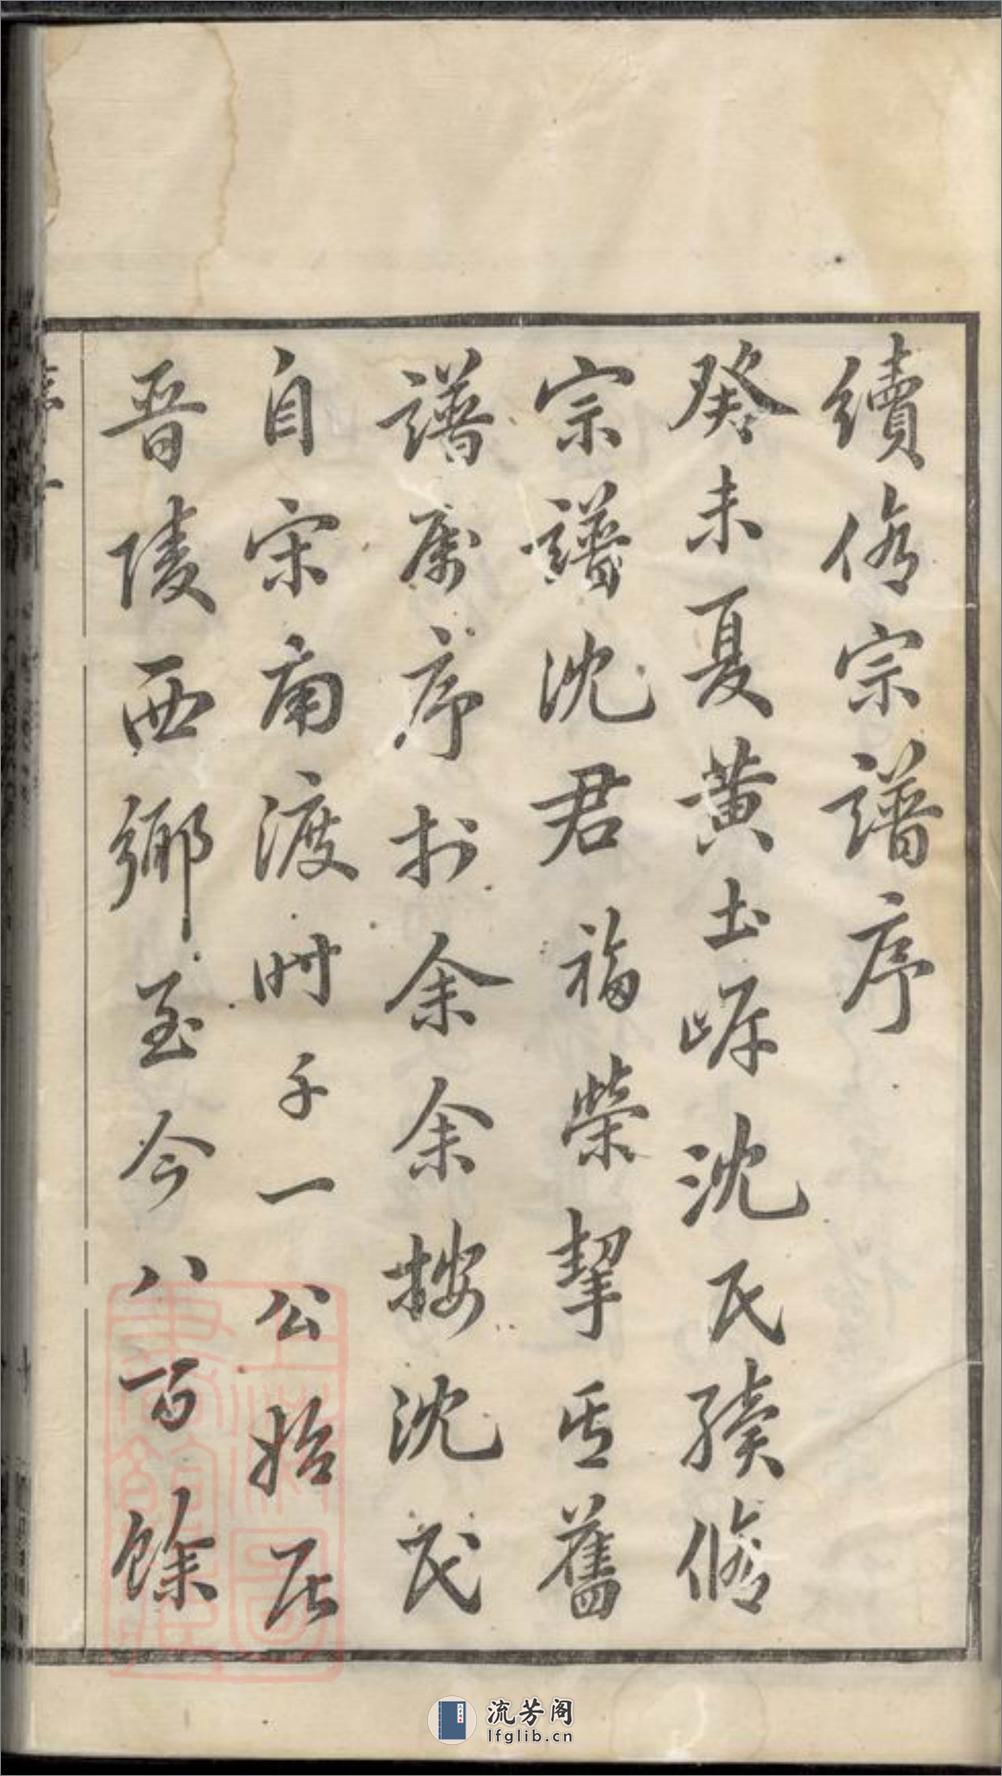 續修宗譜序
癸未夏黄土岸沈氏續修
宗譜沈君福榮挈其舊
譜屬序於余余按沈氏
自宋南渡時千一公始居
晋陵西鄉至今八百餘
流芳阁
lfglib.cn